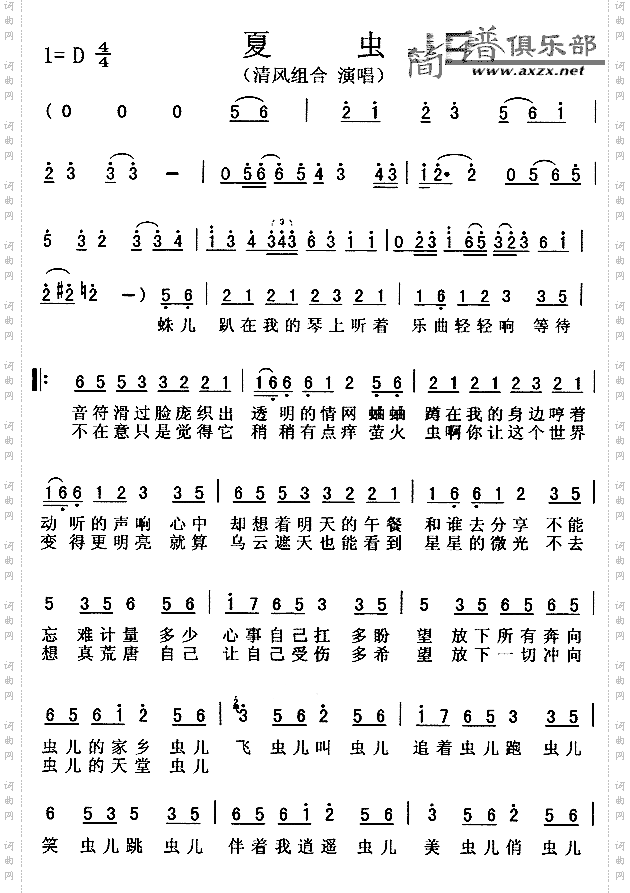 1= D 4/4
夏 虫
简谱俱乐部
www.axzx.net
（清风组合 演唱）
(0 0 0 5 6 | 2 1 2 3 5 6 5 |
2 3 3 3 — | 0 5 6 6 5 4 3 4 3 | 1 2· 2 0 5 6 5 |
5 3 2 3 3 4 | 1 3 4 3 4 3 6 3 1 1 | 0 2 3 1 6 5 3 2 3 6 1 |
2 #2 ♮2 —) 5 6 | 2 1 2 1 2 3 2 1 | 1 6 1 2 3 3 5 |
蛛儿 趴在我的琴上听着 乐曲轻轻响 等待
‖: 6 5 5 3 3 2 2 1 | 1 6 6 6 1 2 5 6 | 2 1 2 1 2 3 2 1 |
音符滑过脸庞织出 透明的情网 蛐蛐 蹲在我的身边哼着
不在意只是觉得它 稍稍有点痒 萤火 虫啊你让这个世界
1 6 6 1 2 3 3 5 | 6 5 5 3 3 2 2 1 | 1 6 6 1 2 3 5 |
动听的声响 心中 却想着明天的午餐 和谁去分享 不能
变得更明亮 就算 乌云遮天也能看到 星星的微光 不去
5 3 5 6 5 6 | 1 7 6 5 3 3 5 | 5 3 5 6 5 6 5 |
忘 难计量 多少 心事自己扛 多盼 望 放下所有奔向
想 真荒唐 自己 让自己受伤 多希 望 放下一切冲向
6 5 6 1 2 5 6 | 3 5 6 2 5 6 | 1 7 6 5 3 3 5 |
虫儿的家乡 虫儿 飞 虫儿叫 虫儿 追着虫儿跑 虫儿
虫儿的天堂 虫儿
6 5 3 5 3 5 | 6 5 6 1 2 5 6 | 3 5 6 2 5 6 |
笑 虫儿跳 虫儿 伴着我逍遥 虫儿 美 虫儿俏 虫儿